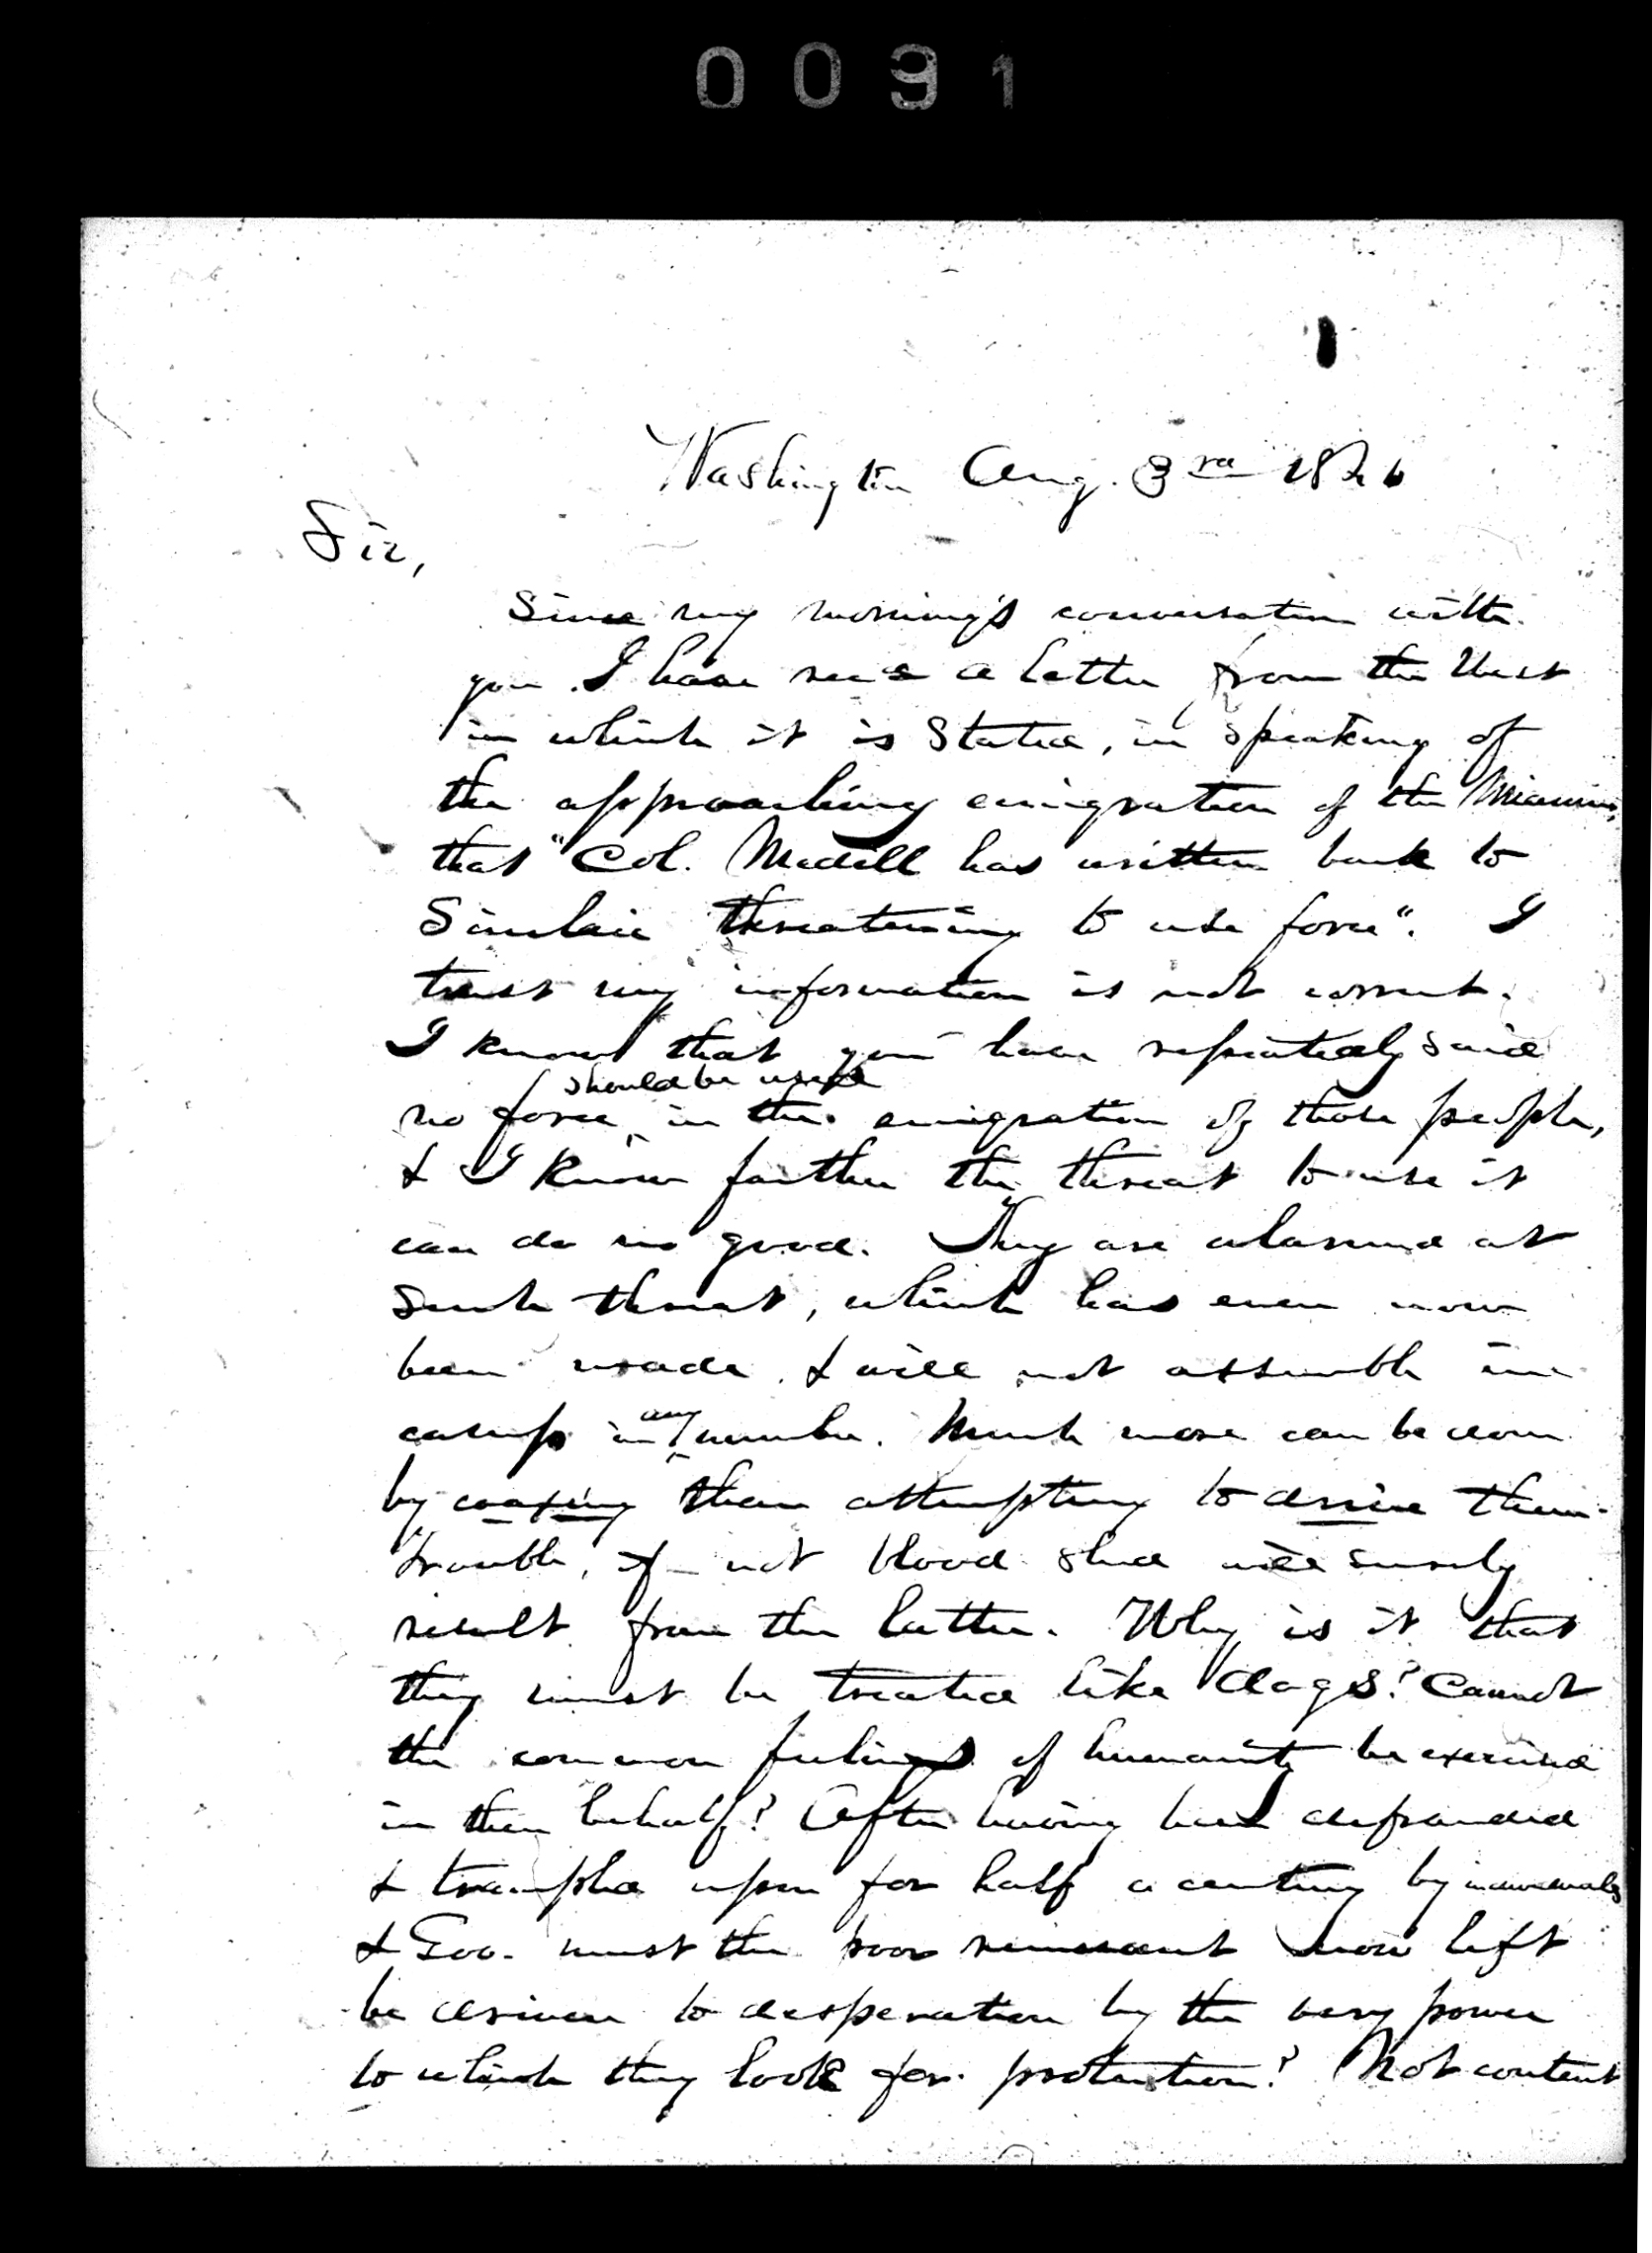 0091
Washington Aug. 3rd 1846
Sir,
Since my morning's conversation with
you I have seen a letter from the West
in which it is Stated, in Speaking of
the approaching emigration of the Miamies,
that "Col. Medill has written back to
Sinclair threatening to use force". I
trust my information is not correct.
I know that you have repeatedly said
should be used
no force in the emigration of those people,
& I know further the threat to use it
can do no good. They are alarmed at
Such threat, which has even now
been made & will not assemble in
any
camp in number. Much more can be done
by coaxing than attempting to drive them.
trouble, if not blood shed will surely
result from the latter. Why is it that
they must be treated like dogs? Cannot
the common feelings of humanity be exercised
in their behalf? After having been defrauded
& trampled upon for half a century by individuals
& Gov. must the poor remnant now left
be driven to desperation by the very power
to which they look for protection? Not content